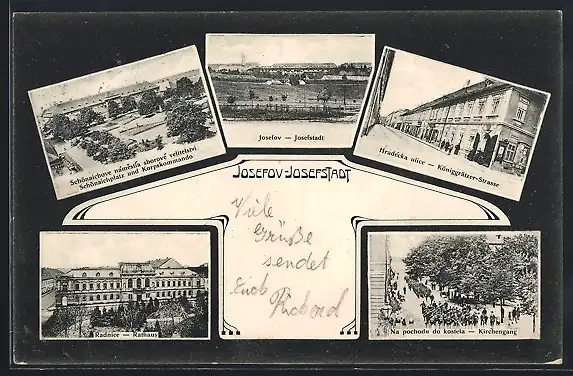 Josefov — Josefstadt
Schönaichove náměstía sborové velitelství
Schönaichplatz und Korpskommando
Hradecka ulice — Königgrätzer-Strasse
JOSEFOV-JOSEFSTADT
Viele
Grüße
sendet
Euch
Radnice — Rathaus
Na pochodu do kostela — Kirchengang